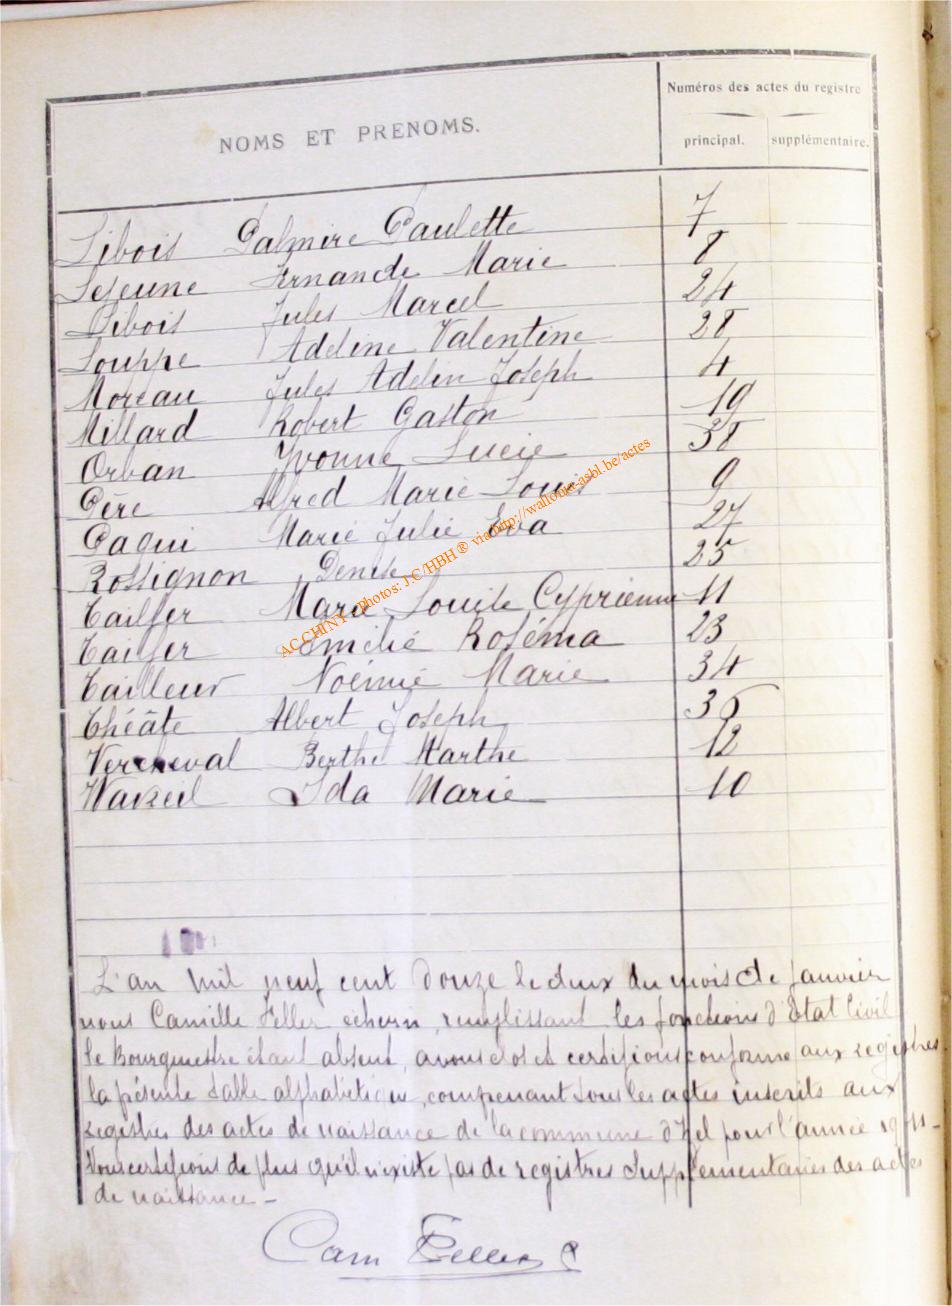 Numéros des actes du registre
NOMS ET PRENOMS.
principal. supplémentaire.
Libois Palmire Paulette 7
Lejeune Fernande Marie 8
Libois Jules Marcel 24
Louppe Adeline Valentine 28
Moreau Jules Adelin Joseph 4
Millard Robert Gaston 19
Orban Yvonne Lucie 38
Père Alfred Marie Louis 9
Paqui Marie Julie Eva 27
Rossignon Denise 25
Tailfer Marie Louise Cyprienne 11
Tailfer Emilie Roséma 23
Tailleur Noémie Marie 34
Théâte Albert Joseph 36
Vercheval Berthe Marthe 12
Wavreil Ida Marie 10
AC CHINY - Photos: J.C/HBH ® via http://wallonie-asbl.be/actes
L'an mil neuf cent douze le deux du mois de Janvier
nous Camille Feller échevin, remplissant les fonctions d'Etat Civil
le Bourgmestre étant absent, avons clos et certifions conforme aux registres
la présente table alphabétique, comprenant tous les actes inscrits aux
registres des actes de naissance de la commune d'Izel pour l'année 1911 -
Nous certifions de plus qu'il n'existe pas de registres supplémentaires des actes
de naissance -
Cam Feller